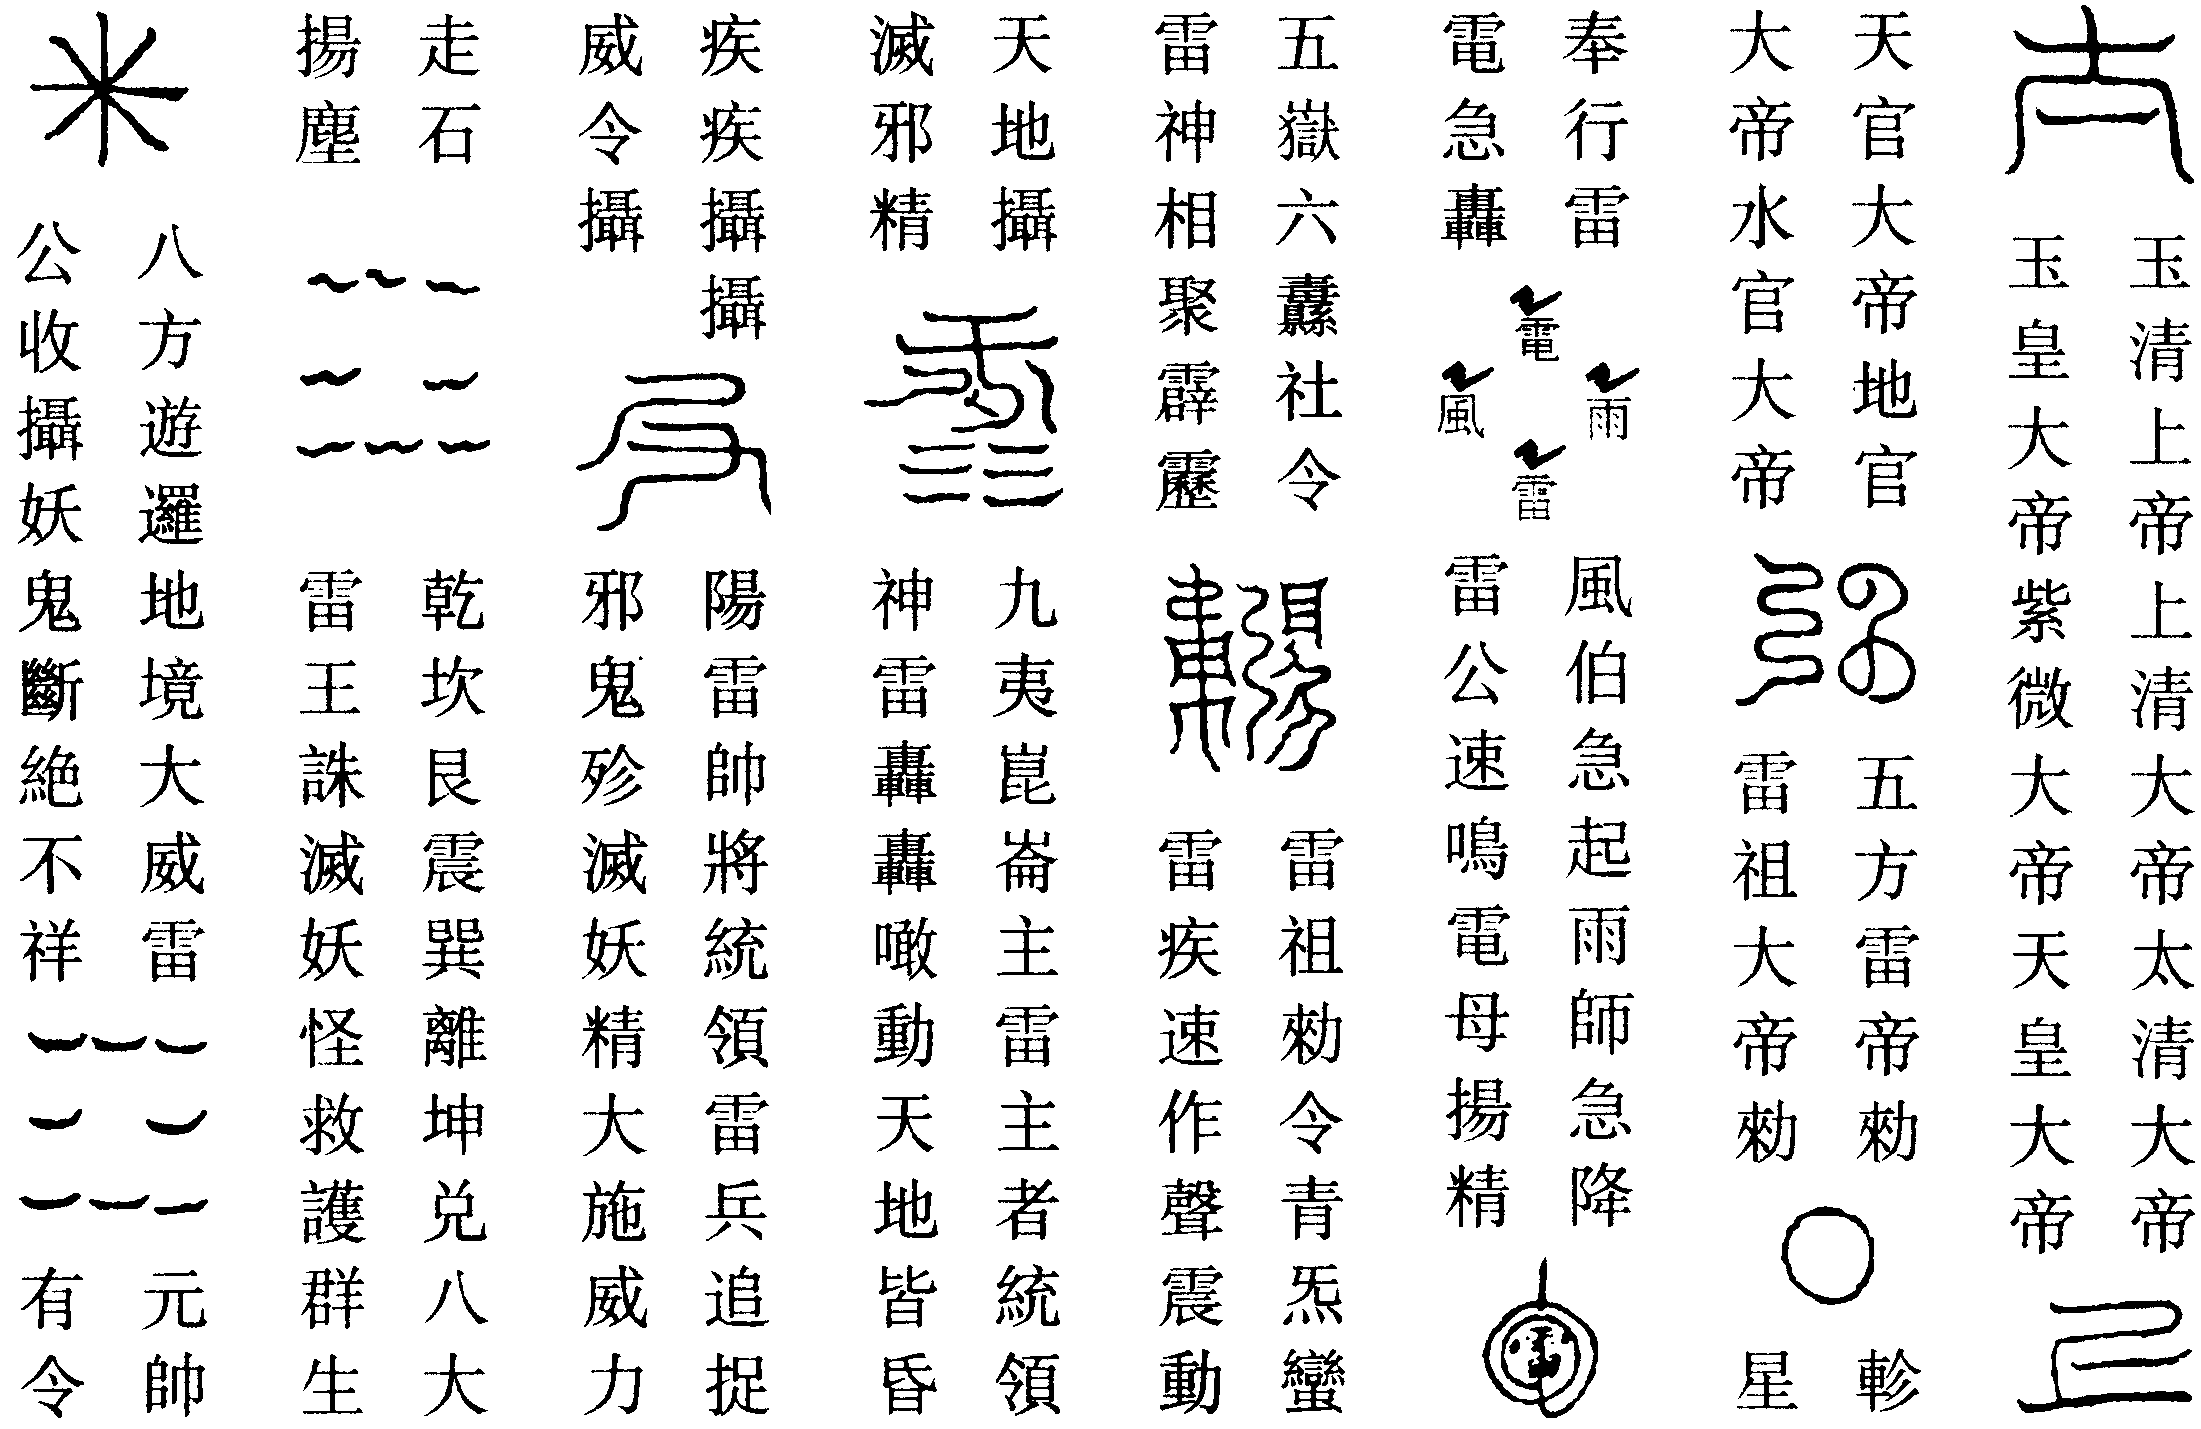 玉清上帝上清大帝太清大帝
玉皇大帝紫微大帝天皇大帝
天官大帝地官
大帝水官大帝
五方雷帝勑
雷祖大帝勑
軫
星
奉行雷
電急轟
電
雨
風
雷
風伯急起雨師急降
雷公速鳴電母揚精
雷
五嶽六纛社令
雷神相聚霹靂
雷祖勑令青炁蠻
雷疾速作聲震動
天地攝
滅邪精
九夷崑崙主雷主者統領
神雷轟轟噉動天地皆昏
疾疾攝攝
威令攝
陽雷帥將統領雷兵追捉
邪鬼殄滅妖精大施威力
走石
揚塵
乾坎艮震巽離坤兌八大
雷王誅滅妖怪救護群生
八方遊邏地境大威雷
公收攝妖鬼斷絕不祥
元帥
有令